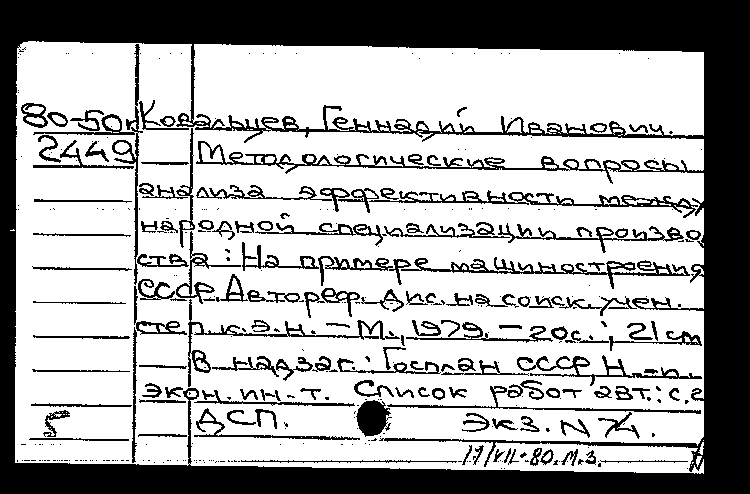 80-50к Ковальцев, Геннадий Иванович.
2449 Методологические вопросы
анализа эффективность между
народной специализации произво
ства: На примере машиностроения
СССР. Автореф. дис. на соиск. учен.
степ. к.э.н. – М., 1979. – 20с.; 21 см
В надзаг.: Госплан СССР, Н.-и.
экон. ин-т. Список работ авт.: с.2
5 ДСП. Экз. N 74.
17/VII-80. М.З.